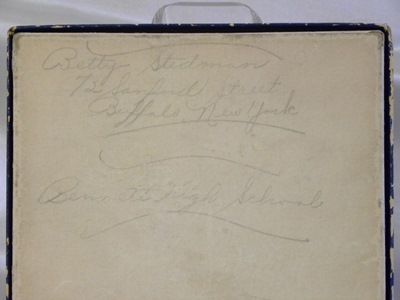 Betty Stedman
72 Sanford Street
Buffalo, New York
Bennett High School